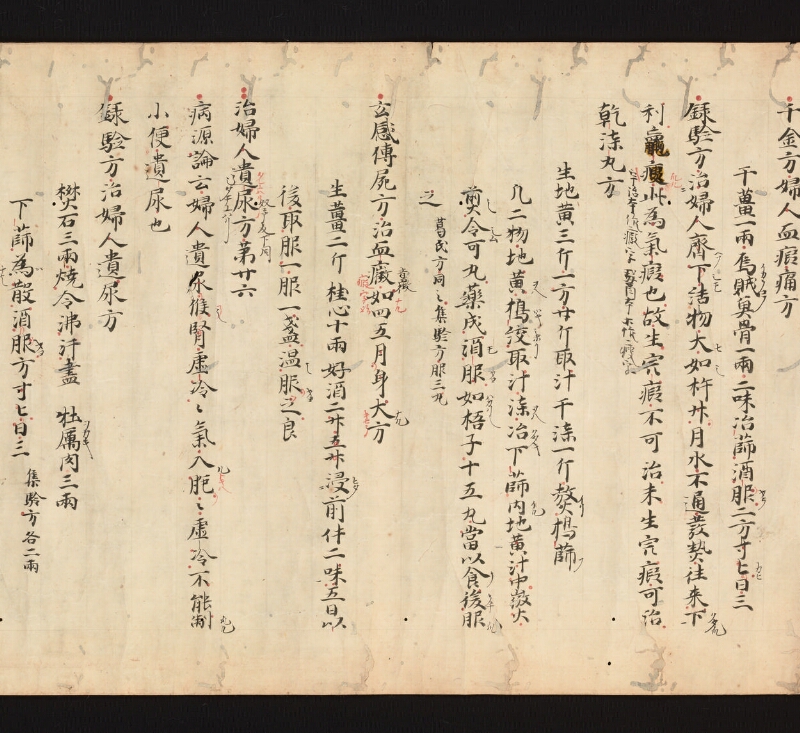 千金方婦人血瘕痛方
干薑一兩烏賊魚骨一兩二味治篩酒服二方寸匕日三
錄驗方治婦人齊下結物大如杵升月水不通發熱往來下
利羸瘦此為氣瘕也故生完瘕不可治未生完瘕可治
乾漆丸方
生地黃三斤一方廿斤取汁干漆一斤熬擣篩
凡二物地黃擣絞取汁漆冶下篩内地黃汁中微火
煎令可丸藥成酒服如梧子十五丸當以食後服
之 葛氏方同之集驗方服三丸
玄感傳屍方治血癥如四五月身大方
生薑二斤桂心十兩好酒二升五升浸前件二味五日以
後取服一服一盞温服之良
治婦人遺尿方第廿六
病源論云婦人遺尿候腎虛冷々氣入胞々虛冷不能制
小便遺尿也
錄驗方治婦人遺尿方
礬石三兩燒令沸汁盡 牡厲肉三兩
下篩為散酒服方寸匕日三 集驗方各二兩